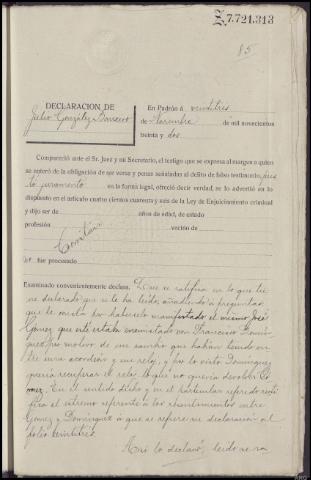 Z.7.721.313
85
DECLARACION DE
Julio González Barrero
En Padrón á veintitres
de Noviembre de mil novecientos
treinta y dos
Compareció ante el Sr. Juez y mi Secretario, el testigo que se expresa al margen a quien
se enteró de la obligación de ser veraz y penas señaladas al delito de falso testimonio, pres
tó juramento en la forma legal, ofreció decir verdad, se le advertió en lo
dispuesto en el artículo cuatro cientos cuarenta y seis de la Ley de Enjuiciamiento criminal
y dijo ser de años de edad, de estado
profesión vecino de
fue procesado
Examinado convenientemente declara: Que se ratifica en lo que tie
ne declarado que se le ha leido, añadiendo a preguntas
que le consta por habérselo manifestado el mismo José
Gomez que este estaba enemistado con Francisco Domin
guez por motivo de un cambio que habían tenido en
tre una acordeón y un reloj, y por lo visto Dominguez
quería recuperar el reloj lo que no quería devolver Go
mez. En el sentido dicho y en el particular referido recti
fica el extremo referente a los
Gomez y Dominguez a que se refiere su declaración al
folio veintitres.
Así lo declaró, leido se ra